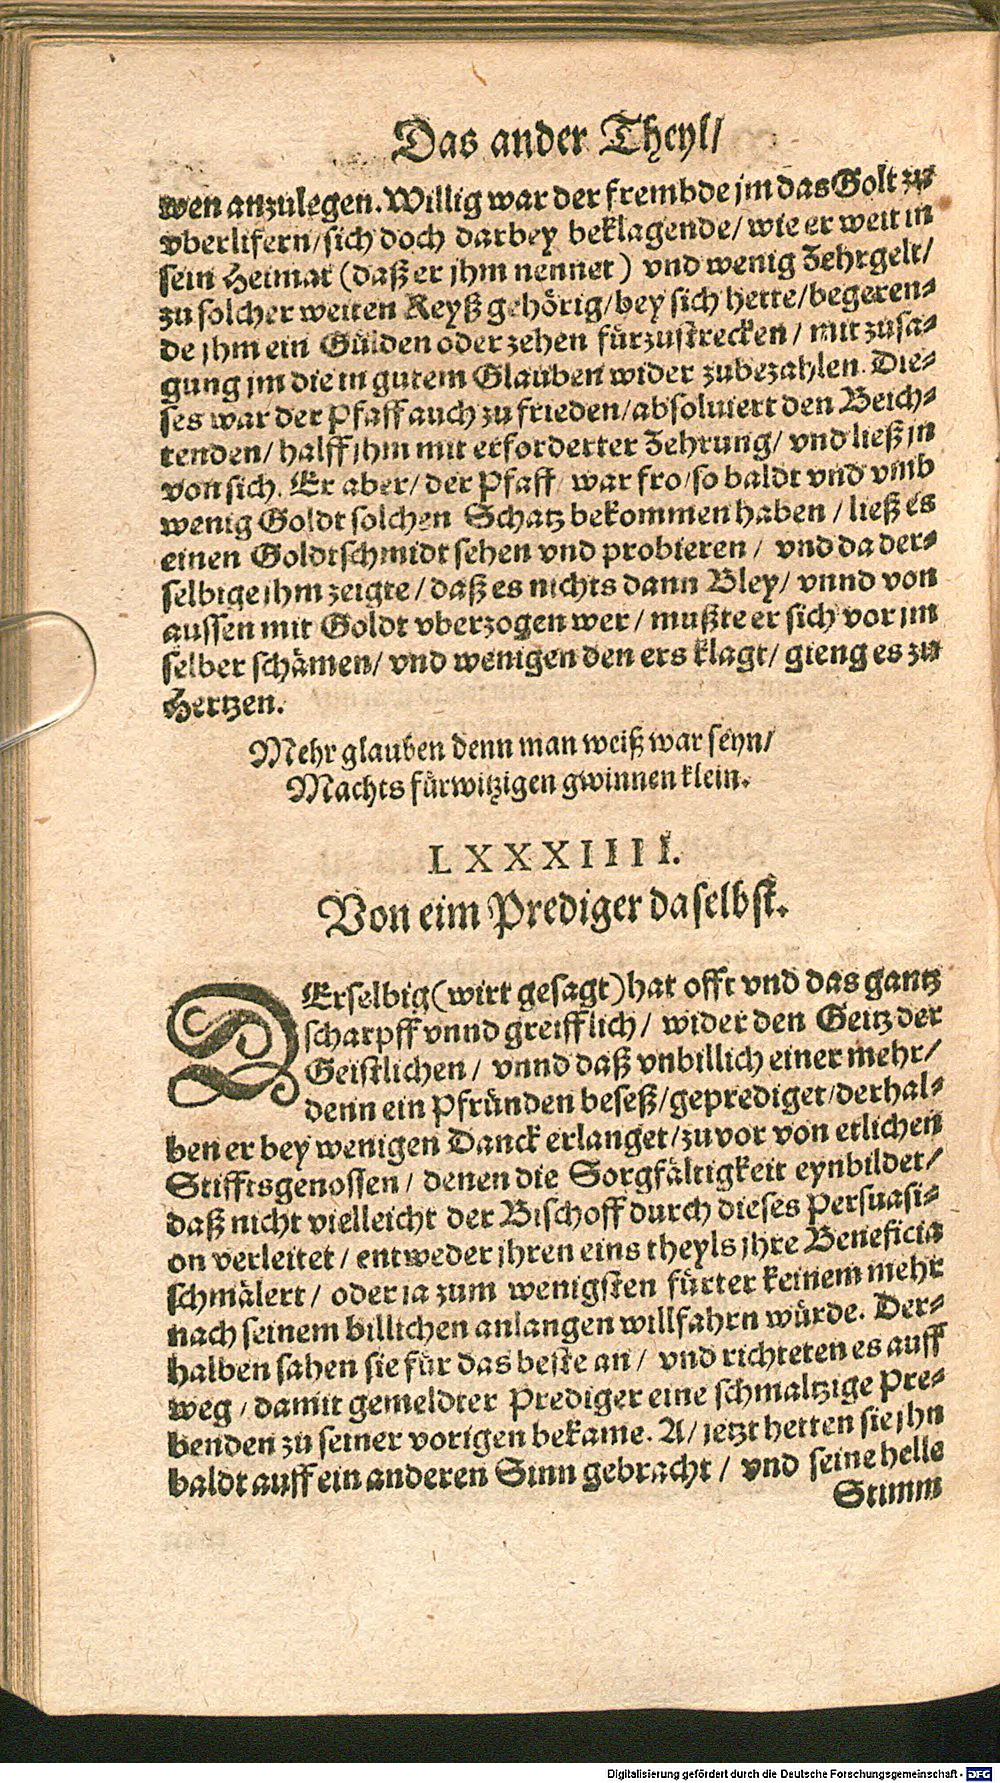 Das ander Theyl/
wen anzulegen. Willig war der frembde jm das Golt zu
vberlifern/sich doch darbey beklagende/ wie er weit in
sein Heimat (daß er jhm nennet) vnd wenig Zehrgelt/
zu solcher weiten Reyß gehörig/bey sich hette/begeren-
de jhm ein Gülden oder zehen fürzustrecken/ mit zusa-
gung jm die in gutem Glauben wider zubezahlen. Die-
ses war der Pfaff auch zu frieden/absolviert den Beich-
tenden/ halff jhm mit erforderter Zehrung/ vnd ließ jn
von sich. Er aber/ der Pfaff/ war fro/so baldt vnd vmb
wenig Goldt solchen Schatz bekommen haben/ ließ es
einen Goldtschmidt sehen vnd probieren/ vnd da der-
selbige jhm zeigte/ daß es nichts dann Bley/ vnnd von
aussen mit Goldt vberzogen wer/ mußte er sich vor jm
selber schämen/ vnd wenigen den ers klagt/ gieng es zu
Hertzen.
Mehr glauben denn man weiß war seyn/
Machts fürwitzigen gwinnen klein.
LXXXIIII.
Von eim Prediger daselbst.
DErselbig (wirt gesagt) hat offt vnd das gantz
scharpff vnnd greifflich/ wider den Geitz der
Geistlichen/ vnnd daß vnbillich einer mehr/
denn ein Pfründen beseß/geprediget/derhal-
ben er bey wenigen Danck erlanget/zuvor von etlichen
Stifftsgenossen/ denen die Sorgfältigkeit eynbildet/
daß nicht vielleicht der Bischoff durch dieses Persuasi-
on verleitet/ entweder jhren eins theyls jhre Beneficia
schmälert/ oder ja zum wenigsten fürter keinem mehr
nach seinem billichen anlangen willfahrn würde. Der-
halben sahen sie für das beste an/ vnd richteten es auff
weg/ damit gemeldter Prediger eine schmaltzige Pre-
benden zu seiner vorigen bekame. A/ jetzt hetten sie jhn
baldt auff ein anderen Sinn gebracht/ vnd seine helle
Stimm
Digitalisierung gefördert durch die Deutsche Forschungsgemeinschaft - DFG